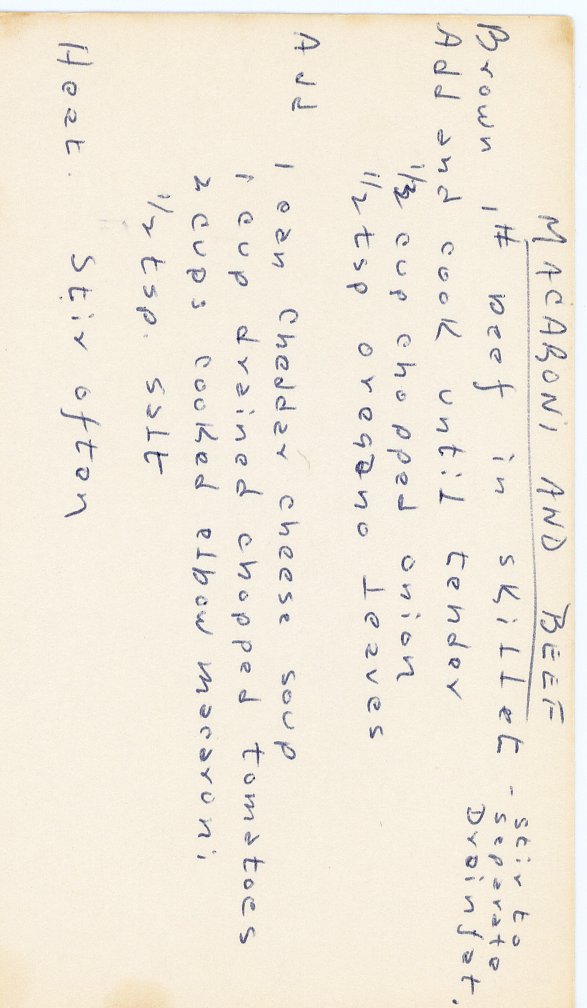 MACARONI AND BEEF
Brown 1# beef in skillet - stir to
separate
Drain fat.
Add and cook until tender
1/2 cup chopped onion
1/2 tsp oregano leaves
Add 1 can cheddar cheese soup
1 cup drained chopped tomatoes
2 cups cooked elbow macaroni
1/2 tsp. salt
Heat. Stir often